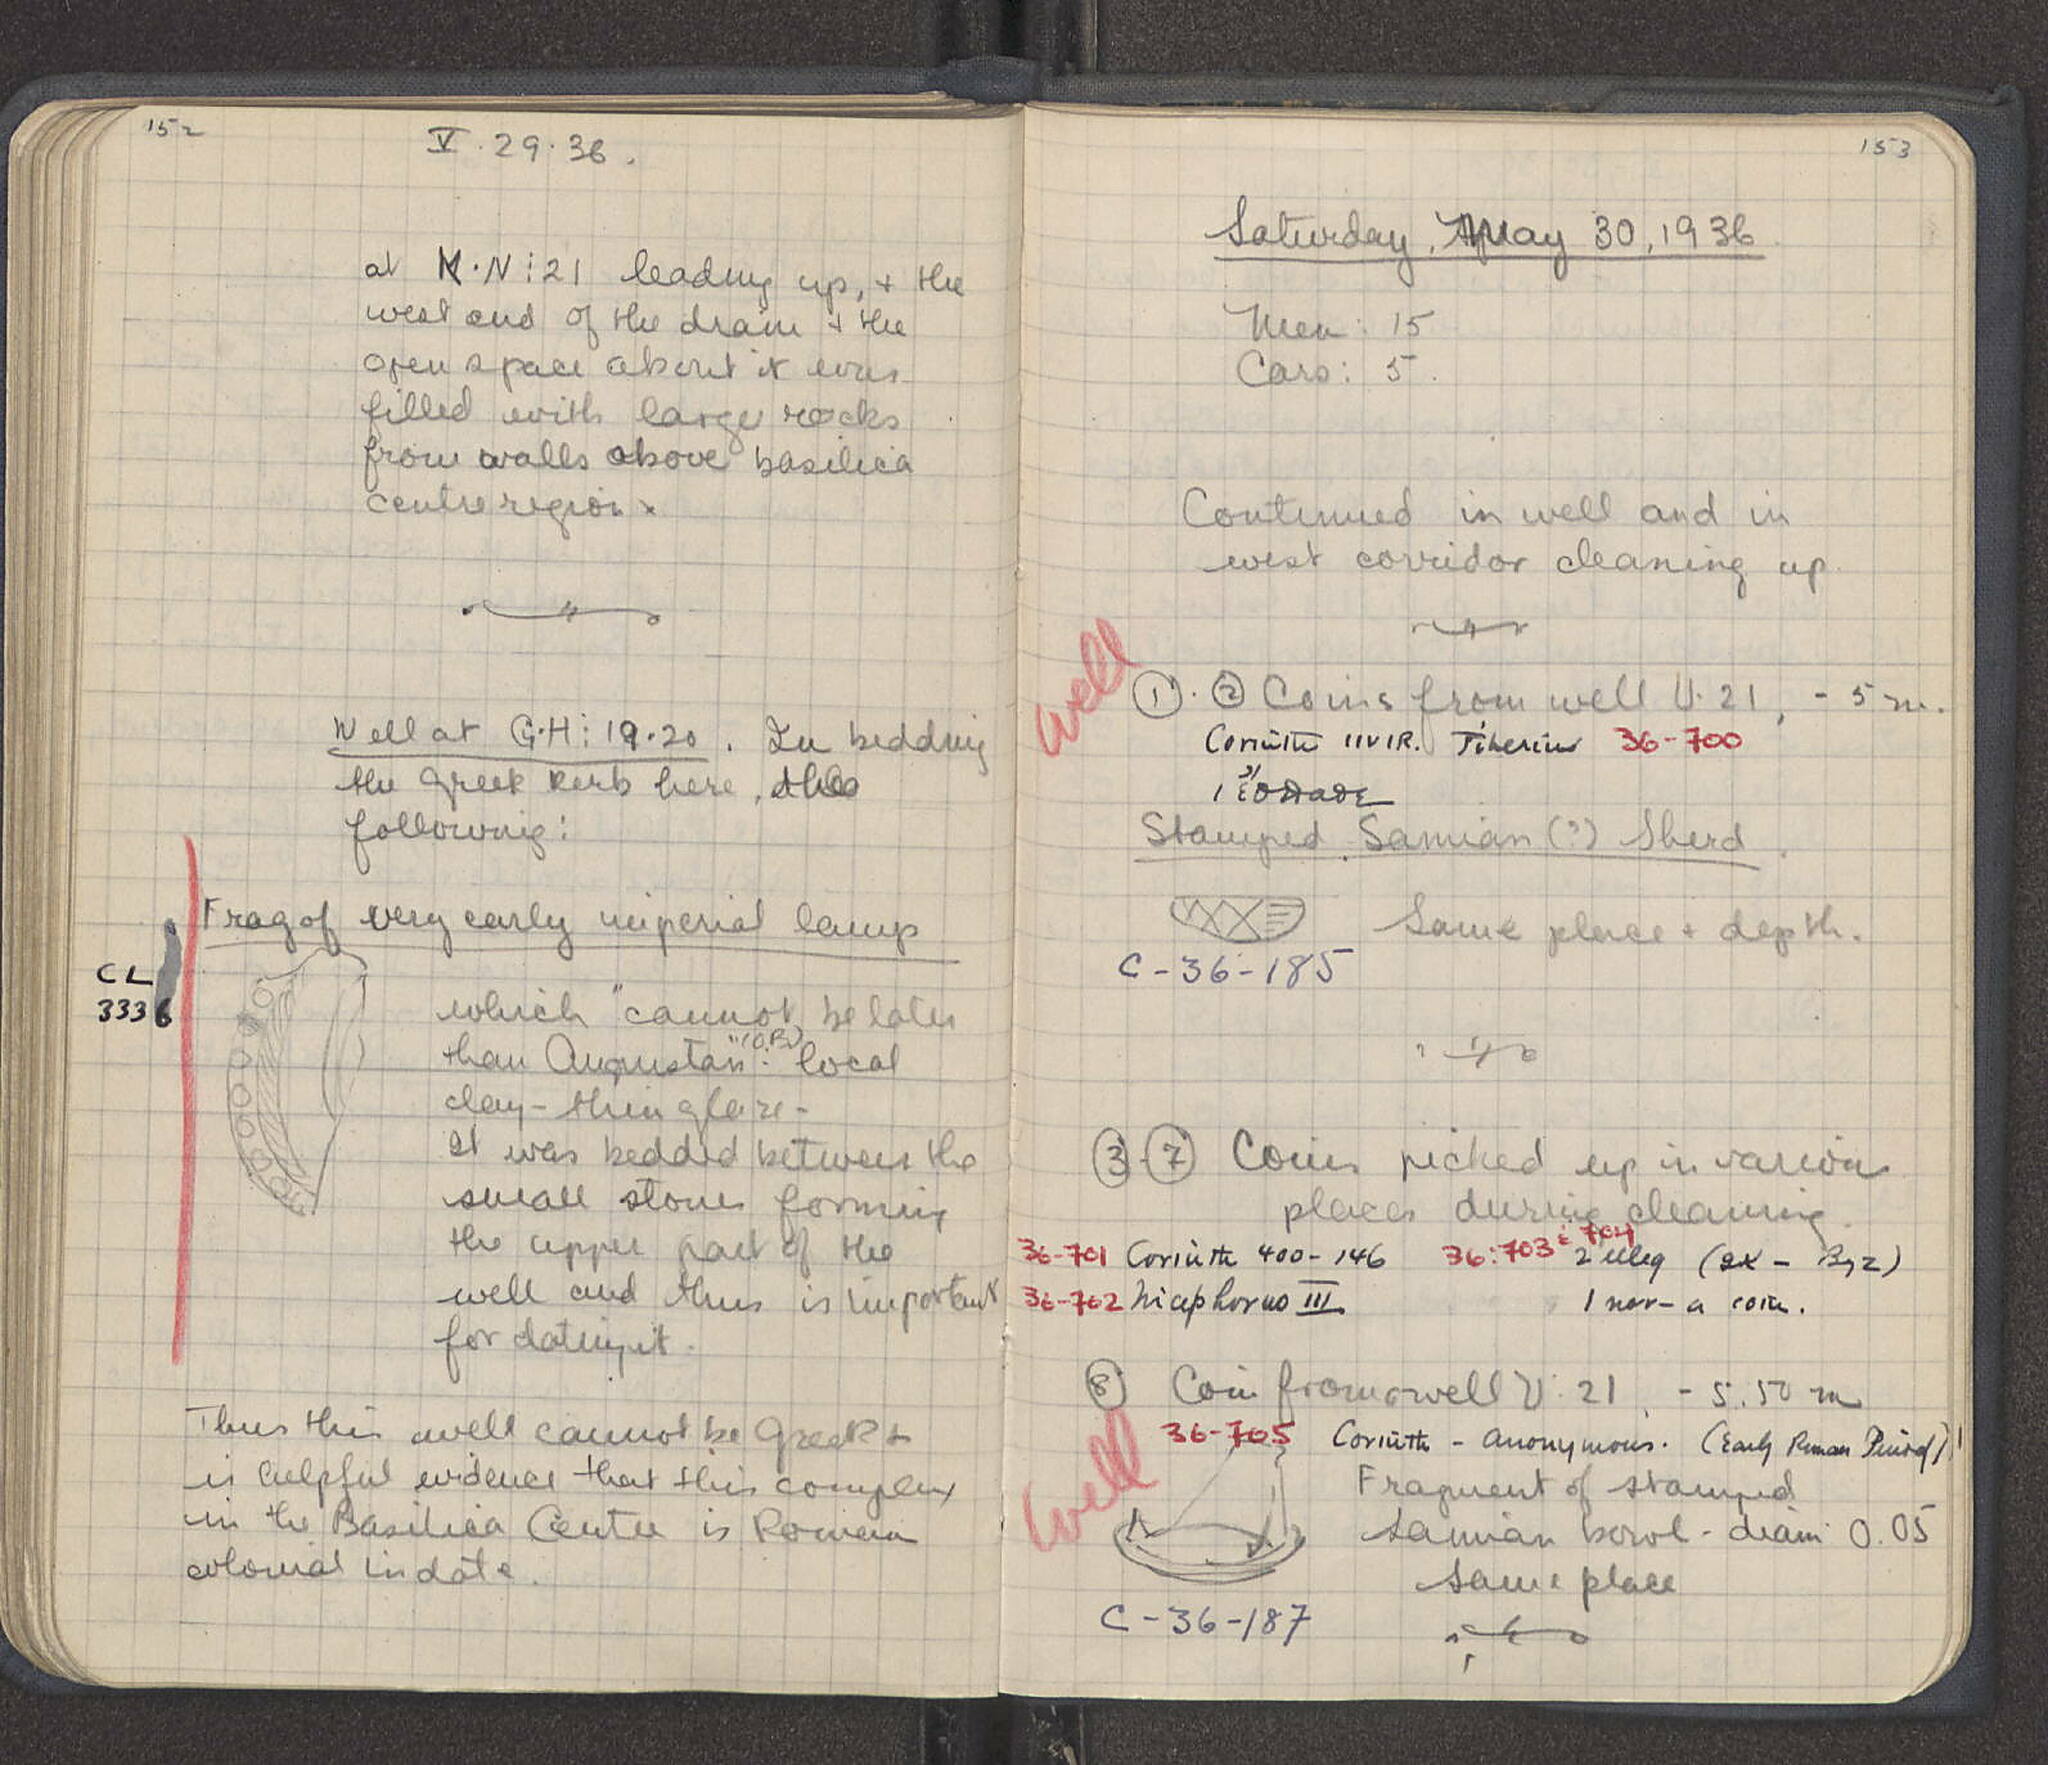 152
V. 29. 36.
at K·N:21 leading up, + the
west end of the drain + the
open space about it was
filled with large rocks
from walls above basilica
centre region.
Well at G·H: 19·20. In bedding
the Greek kerb here, the
following:
Frag of very early imperial lamp
CL
3336
which "cannot be later
than Augustan" (O.B.): local
clay - thin glaze -
It was bedded between the
small stones forming
the upper part of the
well and thus is important
for dating it.
Thus this well cannot be Greek +
is helpful evidence that this complex
in the Basilica Centre is Roman
colonial in date.
153
Saturday, May 30, 1936
Men: 15
Cars: 5.
Continued in well and in
west corridor cleaning up.
Well
① · ② Coins from well U·21, - 5 m.
Corinth IIVIR. Tiberius 36-700
1
Stamped Samian (?) Sherd.
Same place + depth.
C-36-185
③-⑦ Coins picked up in various
places during cleaning.
36-701 Corinth 400-146 36:703 & 704 2 illeg (2x - Byz)
36-702 Nicephorus III 1 not-a coin.
⑧ Coin from well U:21, - 5.50 m
Well
36-705 Corinth - anonymous. (Early Roman Period)
Fragment of stamped
Samian bowl - diam 0.05
Same place
C-36-187